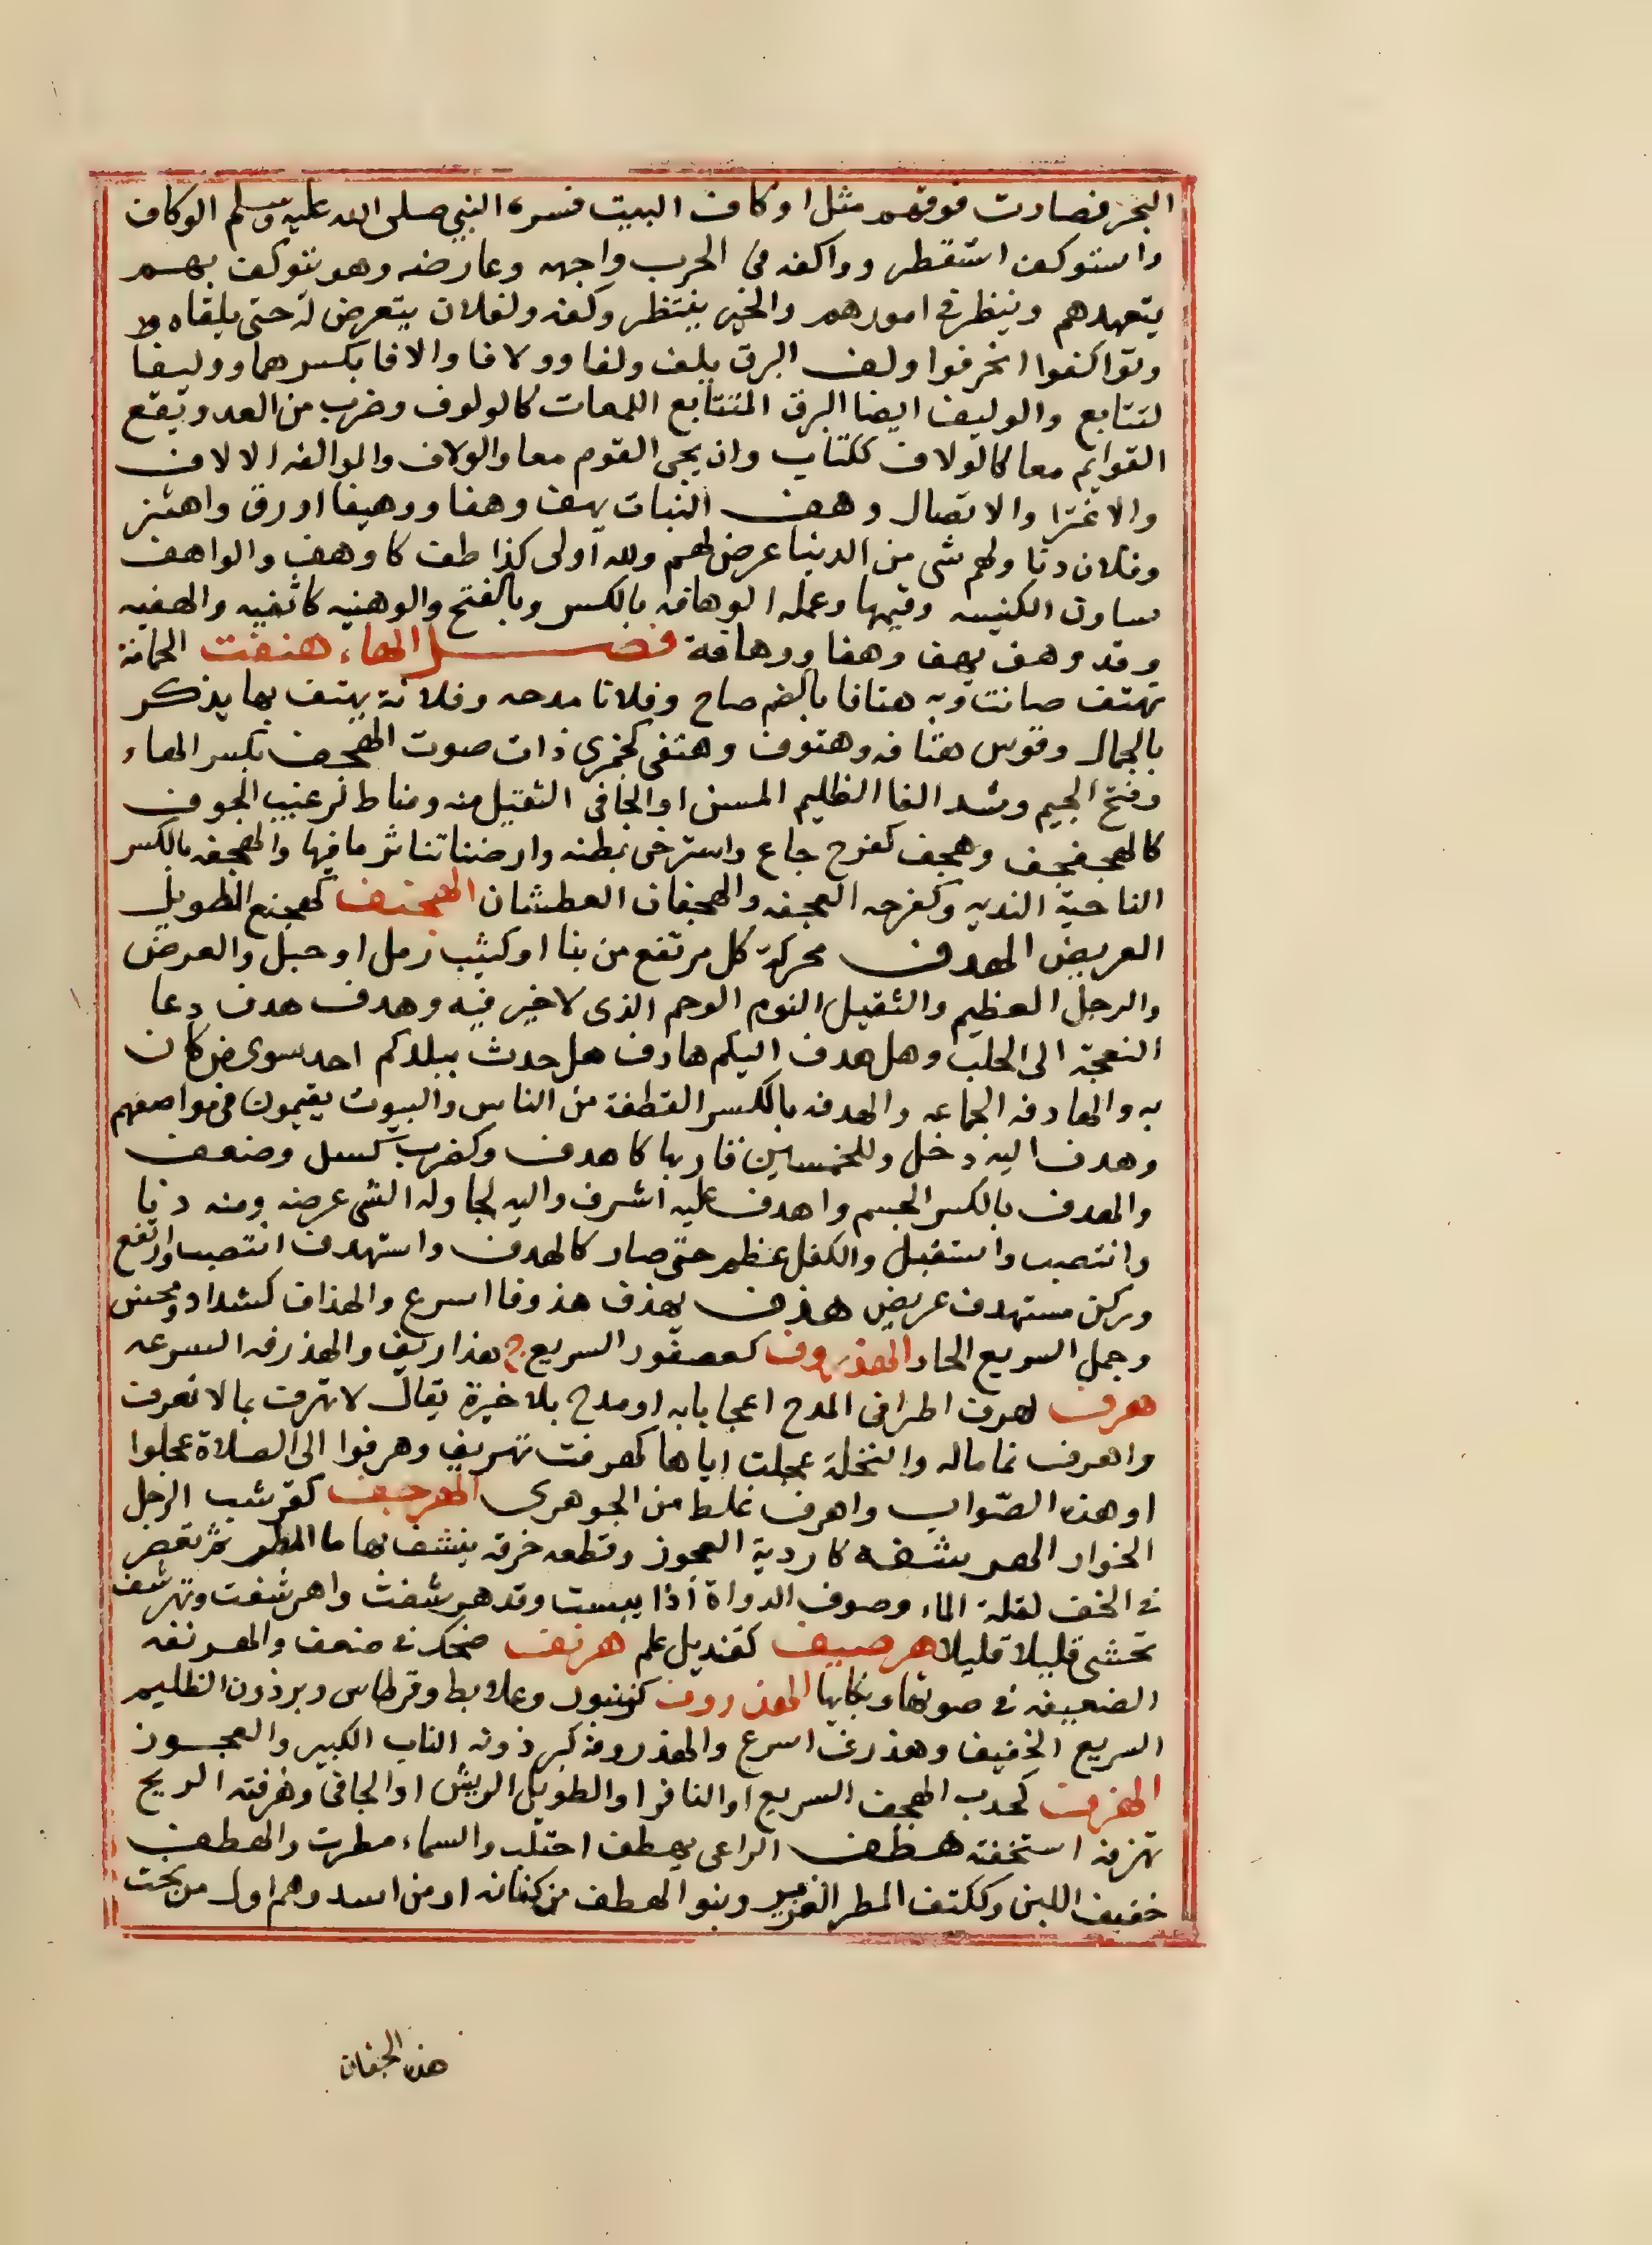 البحر فصارت فوقهم مثل اوكاف البيت فسره النبي صلى الله عليه وسلم الوكاف
واستوكف استقطر وواكفه في الحرب واجهه وعارضه وهو يتوكف بهم
يتعهدهم وينظر في امورهم والخبر ينتظر وكفه ولفلان يتعرض له حتى يلقاه
وتواكفوا انحرفوا ولف البرق يلف ولفا وولافا والافا بكسرهما ووليفا
لتتابع والوليف ايضا البرق المتتابع اللمعات كالولوف وضرب من العدو تقع
القوايم معا كالولاف ككتاب وان يجي القوم معا والولاف والموالفه الالاف
والاعتزا والاتصال وهف النبات يهف وهفا ووهيفا اورق واهتز
وفلان دنا ولهم شي من الدنيا عرض لهم ولله اولى كذا طف كاوهف والواهف
سادن الكنيسه وقيمها وعمله الوهافه بالكسر وبالفتح والوهفيه كاثفيه والهفيه
وقد وهف يهف وهفا ووهافة فصل الهاء هتفت الحمامة
تهتف صاتت وبه هتافا بالضم صاح وفلانا مدحه وفلانة يهتف بها يذكر
بالجمال وقوس هتافه وهتوف وهتفى كجمزى ذات صوت الهجف بكسر الهاء
وفتح الجيم وشد الفا الظليم المسن او الجافي الثقيل منه ومنا ط لرغيب الجوف
كالهجفجف وهجف كفرح جاع واسترخى بطنه وارضنا تناثر ما فيها والهجفه بالكسر
الناحية النديه وكفرحه العجفه والهجفان العطشان الهجنف كهجنع الطويل
العريض الهدف محركة كل مرتفع من بنا او كثيب رمل او جبل والغرض
والرجل العظيم والثقيل النوم الوخم الذي لا خير فيه وهدف هدف دعا
النعجة الى الحلب وهل هدف اليكم هادف هل حدث ببلدكم احد سوى من كان
به والهادفه الجماعه والهدفه بالكسر القطعة من الناس والبيوت يقيمون في مواضعهم
وهدف اليه دخل وللخمسين قاربها كاهدف وكضرب كسل وضعف
والهدف بالكسر الجسم واهدف عليه اشرف واليه لجا وله الشي عرضه ومنه دنا
وانتصب واستقبل والكفل عظم حتى صار كالهدف واستهدف انتصب وارتفع
وركن مستهدف عريض هذف يهذف هذوفا اسرع والهذاف كشداد ومحسن
وجمل السريع الحاد الهذروف كعصفور السريع ج هذاريف والهذرفه السرعه
هرف يهرف اطرا في المدح اعجابا به او مدح بلا خبرة يقال لا تهرف بما لا تعرف
واهرف نما ماله والنخلة عجلت اتاها كهرفت تهريف وهرفوا الى الصلاة عجلوا
او هذه الصواب واهرف غلط من الجوهرى الهرجف كقرشب الرجل
الخوار الهرشفه كاردبة العجوز وقطعه خرقه ينشف بها ما المطر ثم تعصر
في الخف لقلة الماء وصوف الدواة اذا يبست وقد هرشفت واهرشفت وتهرشف
تحسى قليلا قليلا هرصيف كقنديل علم هرنف ضحك في ضعف والهرنفه
الضعيفه في صوتها وبكايها الهذروف كزنبور وعلابط وقرطاس وبرذون الظليم
السريع الخفيف وهذرف اسرع والهذروفه كبرذونه الناب الكبير والعجوز
الهزف كخدب الهجف السريع او النافر او الطويل الريش او الجافي وهزفته الريح
تهزفه استخفته هطف الراعي يهطف احتلب والسماء مطرت والهطف
حفيف اللبن وككتف المطر الغزير وبنو الهطف من كنانه او من اسد وهم اول من نحت
هذه الجفان